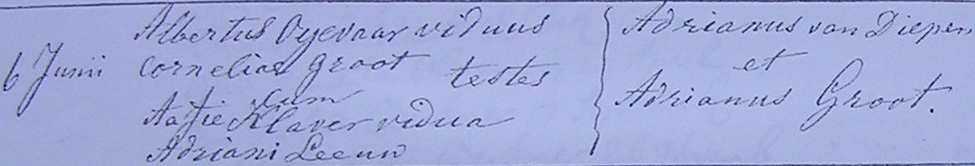 6 Junii
Albertus Oyevaar viduus
Corneliae Groot testes
cum
Aafje Klaver vidua
Adriani Leeuw
Adrianus van Diepen
et
Adrianus Groot.